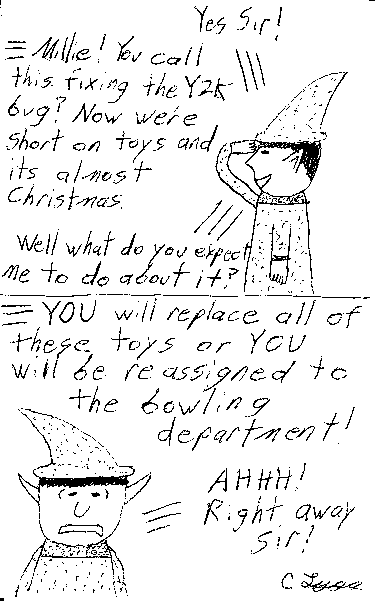 Yes Sir!
Millie! You call
this fixing the Y2K
bug? Now we're
short on toys and
its almost
Christmas.
Well what do you expect
me to do about it?
YOU will replace all of
these toys or YOU
will be reassigned to
the bowling
department!
AHHH!
Right away
Sir!
C